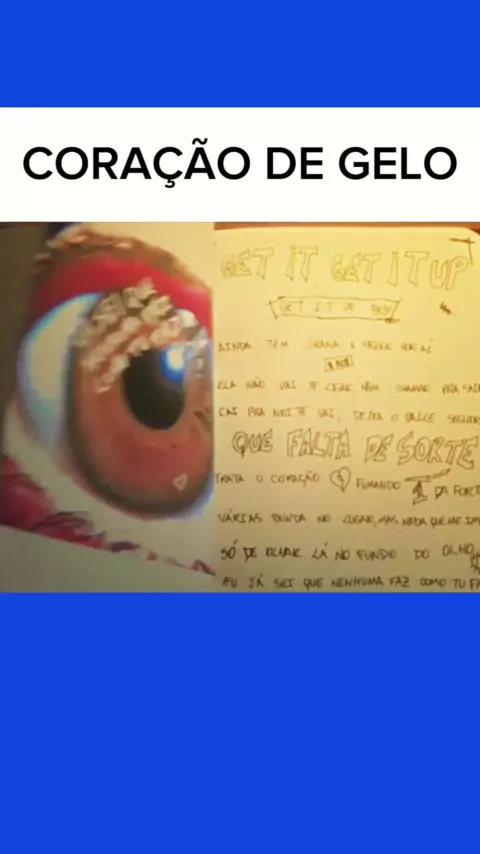 CORAÇÃO DE GELO
GET IT GET IT UP
GET IT UP
AINDA TEM GRANA A FAZER POR AÍ
ELA NÃO VAI TE LIGAR, NEM CHAMAR PRA SAIR
CAI PRA NOITE VAI, DEIXA O BAILE SEGUIR
QUE FALTA DE SORTE
TRATA O CORAÇÃO FUMANDO 1 DA FORTE
VÁRIAS BUNDA NO LUGAR, MAS NADA QUE ME
SÓ DE OLHAR LÁ NO FUNDO DO OLHO
EU JÁ SEI QUE NENHUMA FAZ COMO TU FA